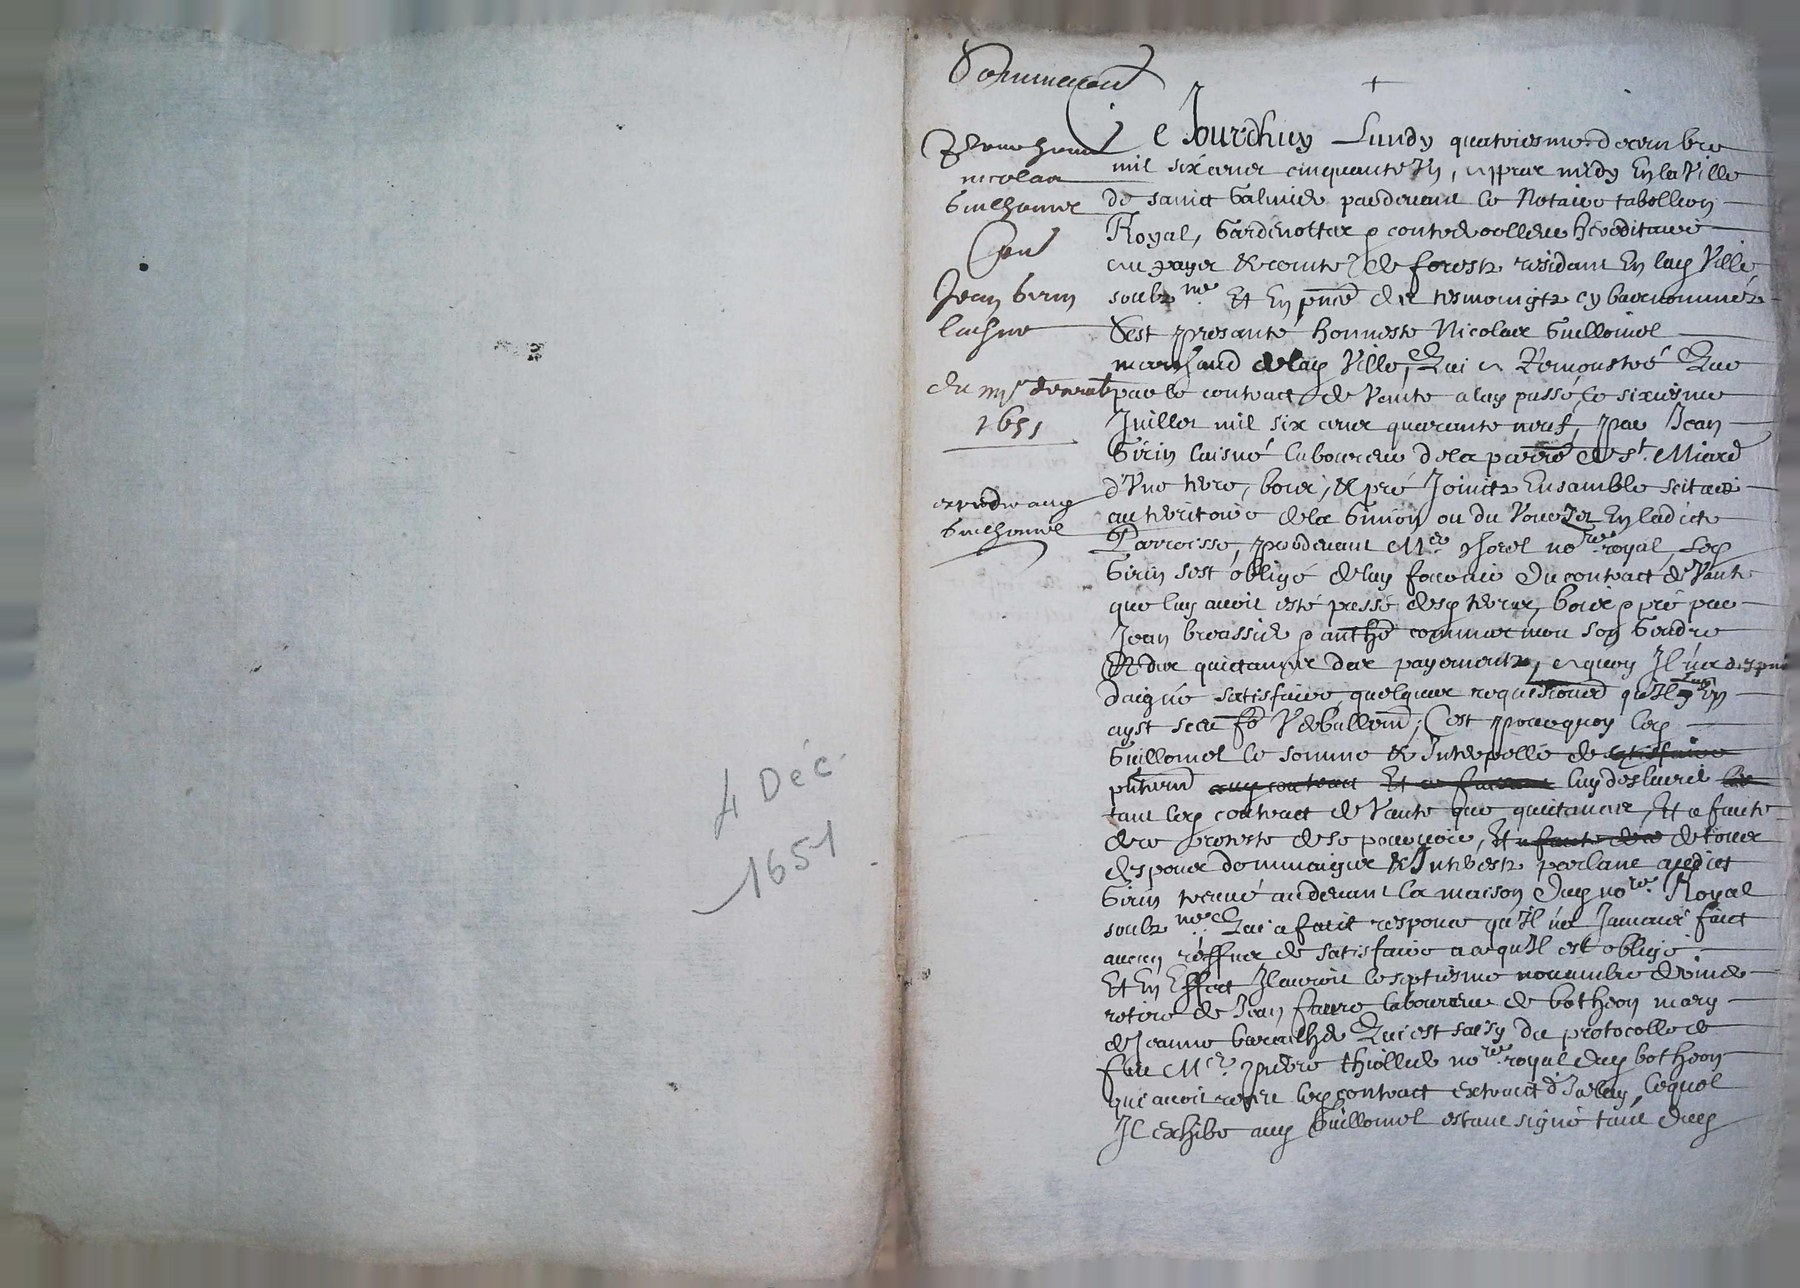 4 Déc.
1651
Sommation
honneste
nicolas
Guilhomel
Con
Jean Girin
laisné
du iiije decemb
1651
expedie aud
Guilhomel
Ce Jourdhuy Lundy quatriesme decembre
mil six cens cinquante Un, appres midy En la Ville
de sainct Galmier pardevant le Notaire tabellion
Royal, Gardenottes & controolleur hereditaire
au pays & comté de forestz residant En lad Ville
soubzne Et En pnce des tesmoingtz cy bas nommez
Sest presanté honneste Nicolas Guillomel
marchand de lad Ville, Qui a Remonstré Que
par le contract de Vante a luy passé le sixiesme
Juillet mil six cens quarante neuf, par Jean
Girin laisné laboureur de la parre de St. Miard
d'Une terre, bois, & pré Joinctz Ensamble scitués
au territoire de la Gimon ou du En ladicte
Parroisse, pardevant Me no.re royal, Led
Girin sest obligé de luy du contract de Vante
que luy avoit esté passé desd terres, bois & pré par
Jean brassier & anthe son Gendre
Et des quictances des payementz, a quoy Il n'a
daigné satisfaire quelques requisitions qu'Il En
ayt Verballemt, C'est pourquoy led
Guillomel le somme & Interpelle de satisfaire
aud contract Et a luy deslivrer
tant led contract de Vante que quictances, Et a faute
de ce proteste de se pourvoir, Et a faute de ce de tous
despans dommaiges & Interestz parlant audict
Girin treuvé au devant la maison dud nore Royal
soubzne Qui a faict responce qu'Il n'a Jamais faict
aucun reffus de satisfaire a ce qu'Il est obligé
Et En Effect Il auroit le septiesme novembre dernier
retiré de Jean faure laboureur de botheon mary
de Jeanne Qui est saisy du protocolle de
feu Me. pierre thiollier nore royal dud botheon
qui avoit receu led contract extraict d'Icelluy, lequel
Il exhibe aud Guillomel estant signé tant dud